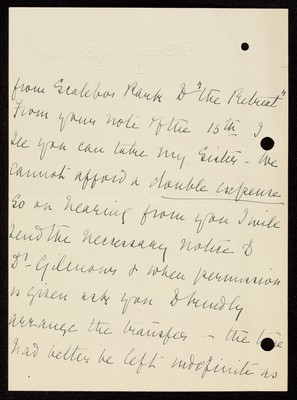 from Scalebor Park to "the Retreat"
From your note of the 15th I
see you can take my Sister - We
cannot afford a double expense
so on hearing from you I will
send the necessary notice to
Dr Gilmour & when permission
is given ask you to kindly
arrange the transfer - the time
had better be left indefinite as